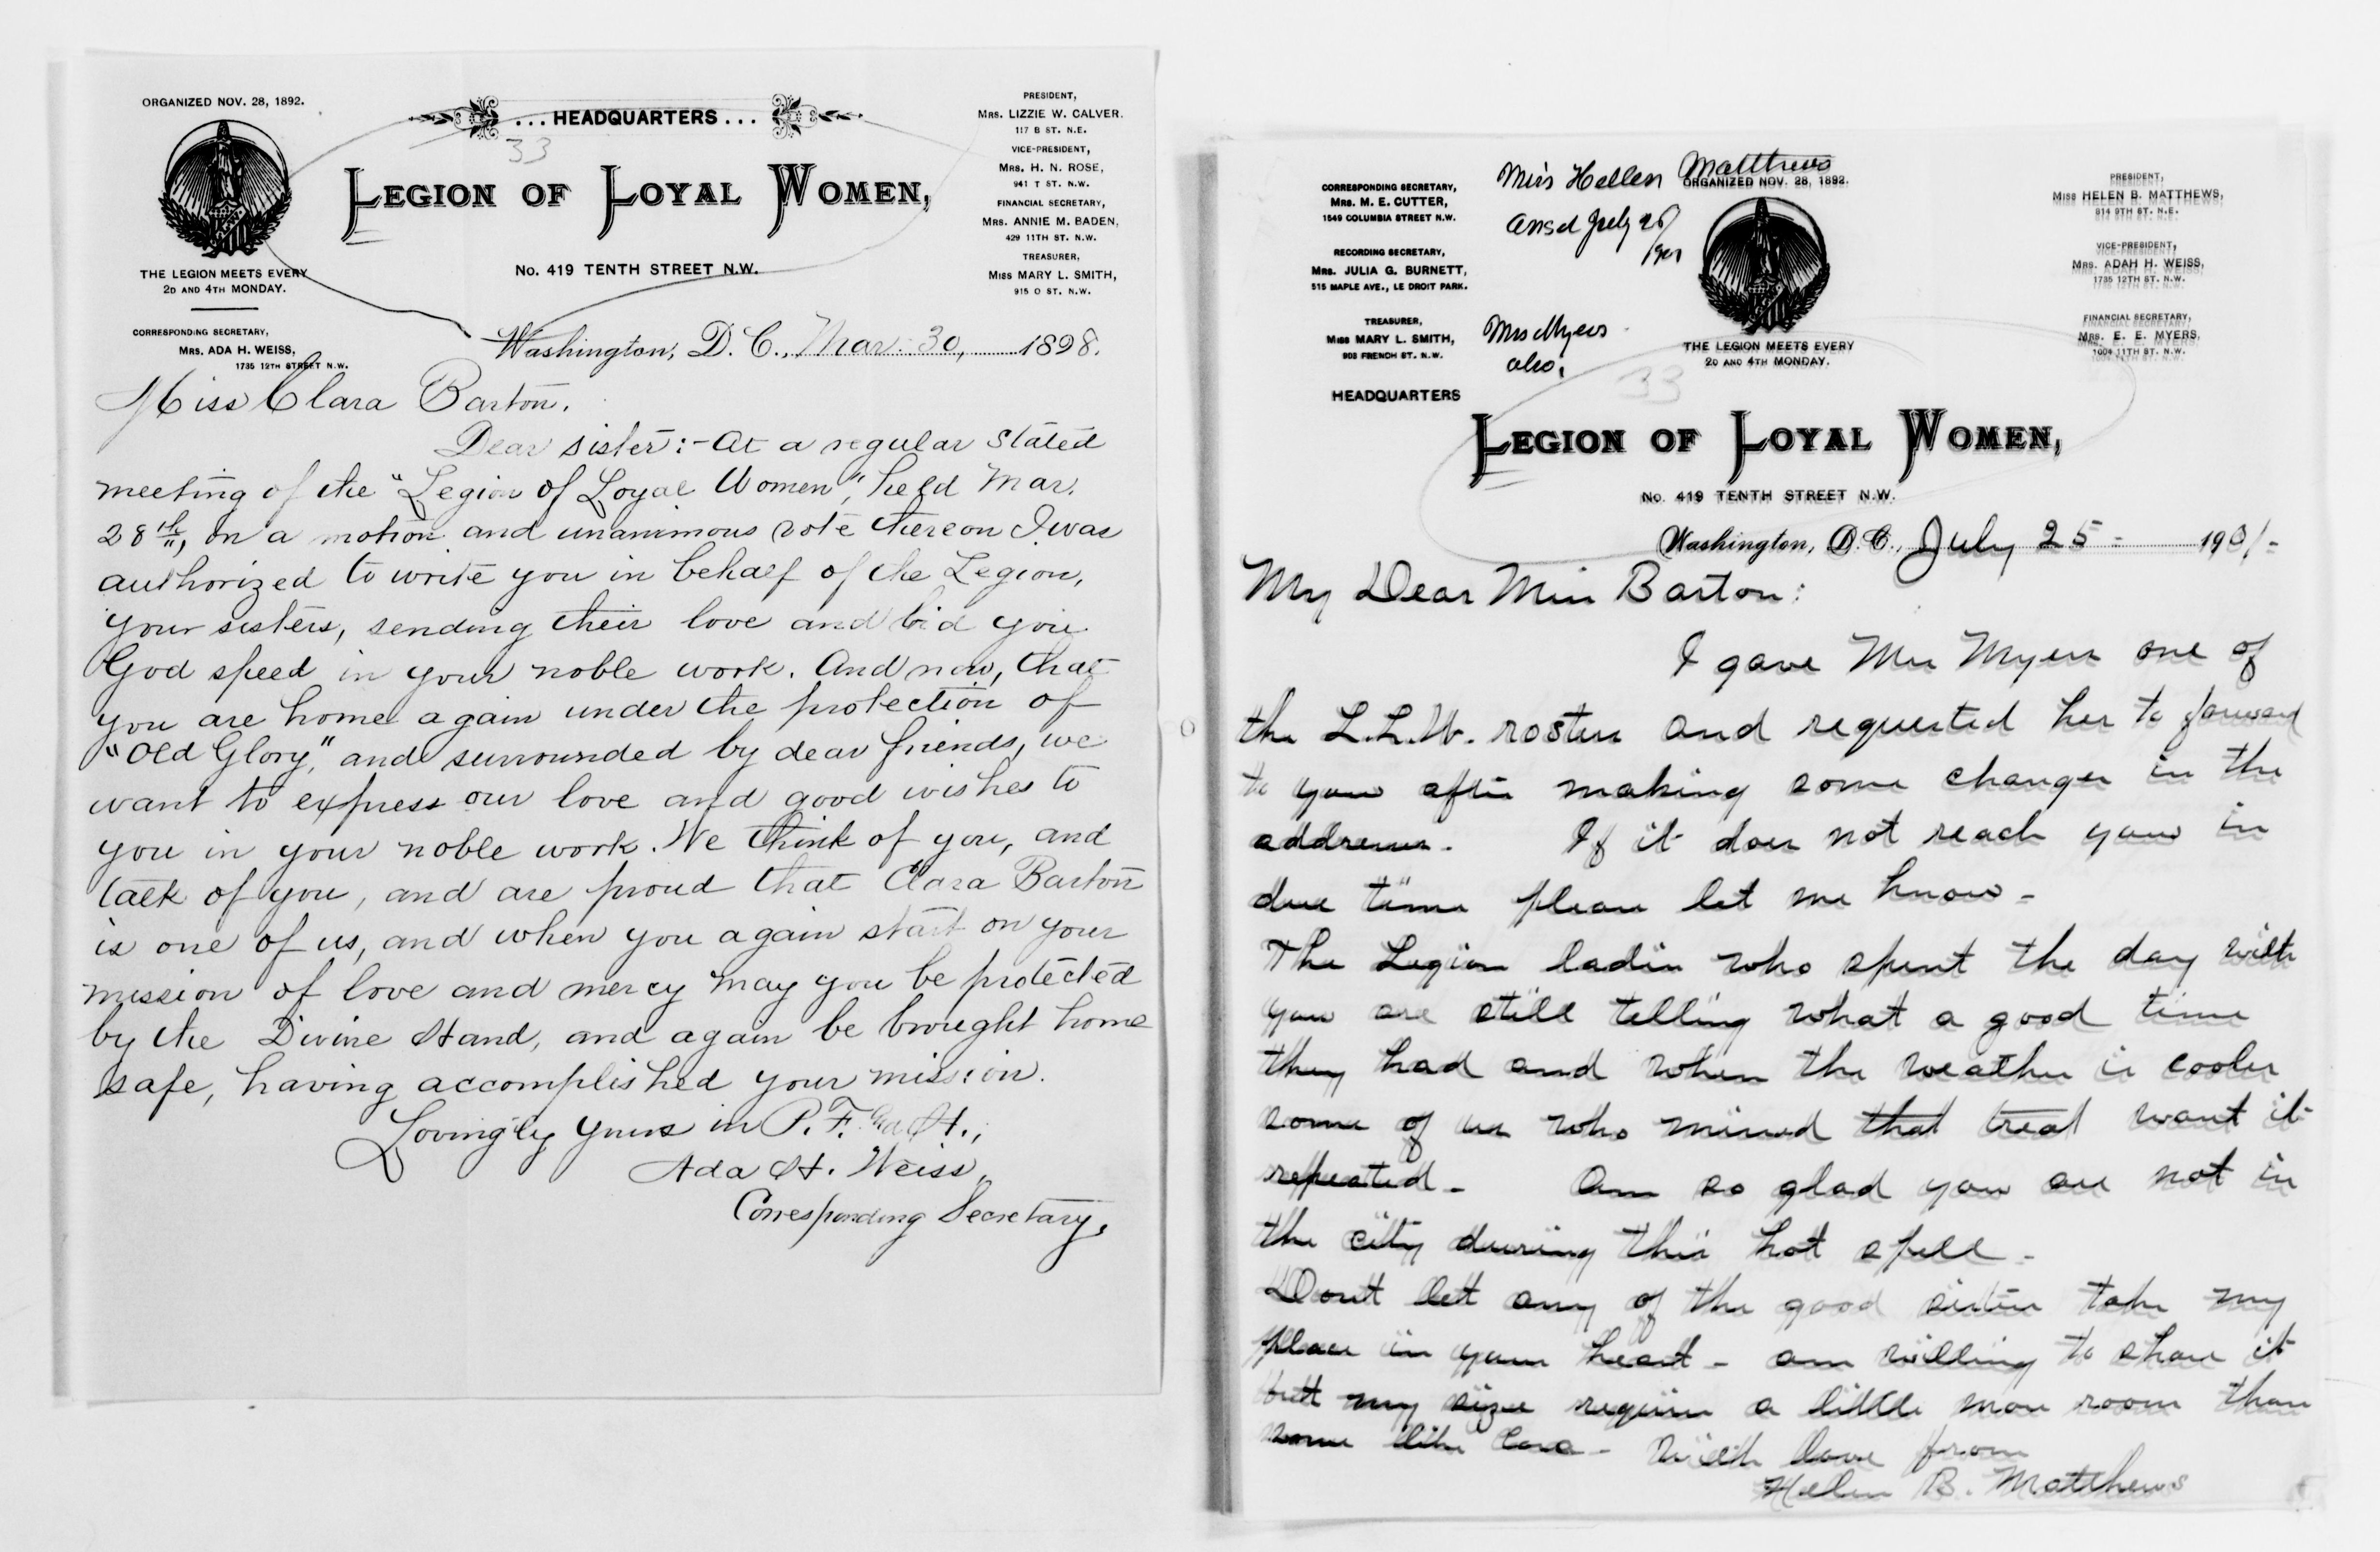 ORGANIZED NOV. 28, 1892.
... HEADQUARTERS ...
33
LEGION OF LOYAL WOMEN,
No. 419 TENTH STREET N.W.
THE LEGION MEETS EVERY
2D AND 4TH MONDAY.
CORRESPONDING SECRETARY,
MRS. ADA H. WEISS,
1735 12TH STREET N.W.
PRESIDENT,
MRS. LIZZIE W. CALVER.
117 B ST. N.E.
VICE-PRESIDENT,
MRS. H. N. ROSE,
941 T ST. N.W.
FINANCIAL SECRETARY,
MRS. ANNIE M. BADEN,
429 11TH ST. N.W.
TREASURER,
MISS MARY L. SMITH,
915 O ST. N.W.
Washington, D. C., Mar. 30, 1898.
Miss Clara Barton.
Dear sister:- At a regular stated
meeting of the "Legion of Loyal Women", held Mar.
28th, on a motion and unanimous vote thereon I was
authorized to write you in behalf of the Legion,
your sisters, sending their love and bid you
God speed in your noble work. And now, that
you are home again under the protection of
"Old Glory," and surrounded by dear friends, we
want to express our love and good wishes to
you in your noble work. We think of you, and
talk of you, and are proud that Clara Barton
is one of us, and when you again start on your
mission of love and mercy may you be protected
by the Divine Hand, and again be brought home
safe, having accomplished your mission.
Lovingly yours in P. F. and H.,
Ada H. Weiss,
Corresponding Secretary.
CORRESPONDING SECRETARY,
MRS. M. E. CUTTER,
1549 COLUMBIA STREET N.W.
RECORDING SECRETARY,
MRS. JULIA G. BURNETT,
515 MAPLE AVE., LE DROIT PARK.
TREASURER,
MISS MARY L. SMITH,
903 FRENCH ST. N.W.
HEADQUARTERS
Miss Hellen Matthews
Ansd July 26/
1901
Mrs Myers
also,
ORGANIZED NOV. 28, 1892.
THE LEGION MEETS EVERY
2D AND 4TH MONDAY.
33
PRESIDENT,
MISS HELEN B. MATTHEWS,
814 9TH ST. N.E.
VICE-PRESIDENT,
MRS. ADAH H. WEISS,
1735 12TH ST. N.W.
FINANCIAL SECRETARY,
MRS. E. E. MYERS,
1004 11TH ST. N.W.
LEGION OF LOYAL WOMEN,
No. 419 TENTH STREET N.W.
Washington, D. C., July 25- 1901-
My Dear Miss Barton:
I gave Mrs Myers one of
the L.L.W. rosters and requested her to forward
to you after making some changes in the
addresses. If it does not reach you in
due time please let me know-
The Legion ladies who spent the day with
you are still telling what a good time
they had and when the weather is cooler
some of us who missed that treat want it
repeated- Am so glad you are not in
the city during this hot spell-
Dont let any of the good sisters take my
place in your heart- am willing to share it
but my size requires a little more room than
some like Cora- With love from
Helen B. Matthews